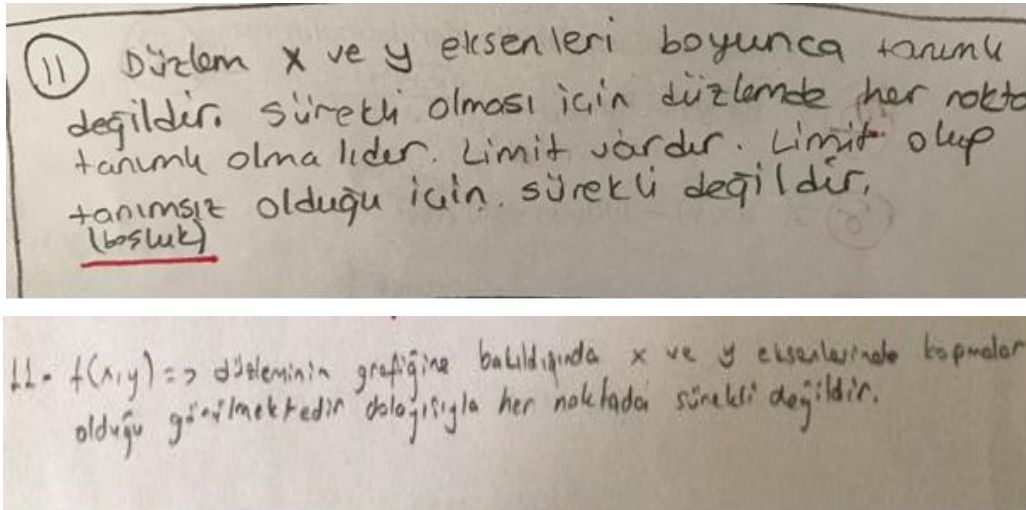 11 Düzlem x ve y eksenleri boyunca tanımlı
değildir. sürekli olması için düzlemde her nokta
tanımlı olmalıdır. Limit vardır. Limit olup
tanımsız olduğu için. sürekli değildir.
(boşluk)
11- f(x,y) => düzleminin grafiğine bakıldığında x ve y eksenlerinde kopmalar
olduğu görülmektedir dolayısıyla her noktada sürekli değildir.